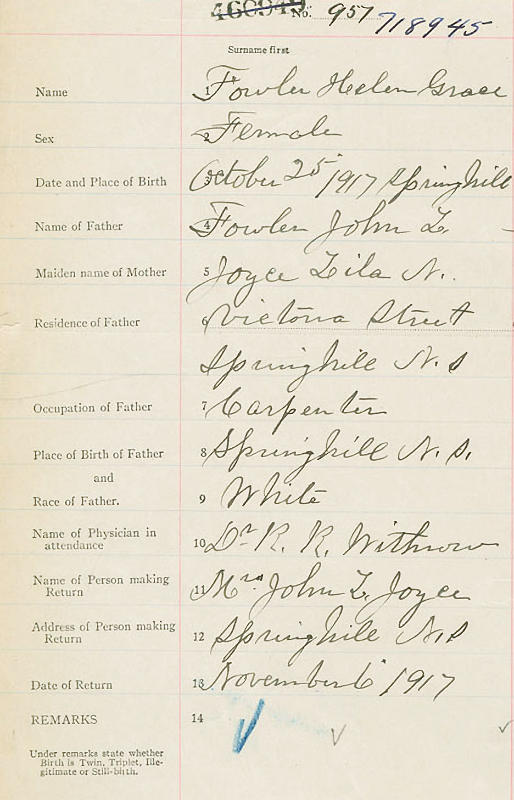 460949 No. 957 718945
Surname first
Name 1 Fowler Helen Grace
Sex 2 Female
Date and Place of Birth 3 October 25 1917 Springhill
Name of Father 4 Fowler John L
Maiden name of Mother 5 Joyce Lila N.
Residence of Father 6 Victoria Street
Springhill N.S
Occupation of Father 7 Carpenter
Place of Birth of Father 8 Springhill N.S.
and
Race of Father. 9 White
Name of Physician in
attendance 10 Dr R. R. Withrow
Name of Person making
Return 11 Mrs. John L. Joyce
Address of Person making
Return 12 Springhill N.S
Date of Return 13 November 6 1917
REMARKS 14
Under remarks state whether
Birth is Twin, Triplet, Ille-
gitimate or Still-birth.